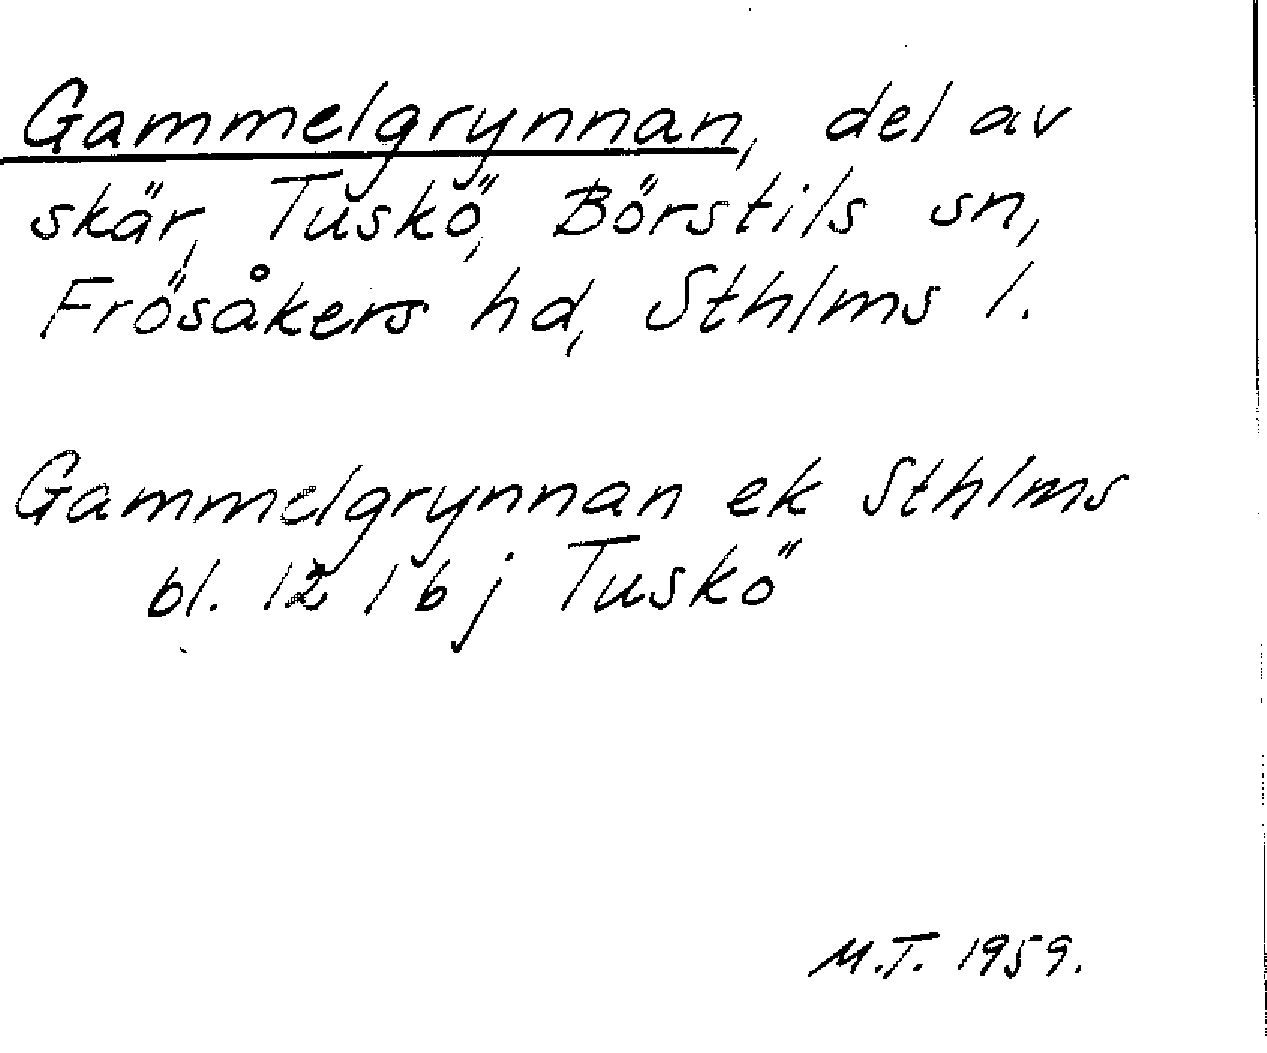 Gammelgrynnan, del av
skär, Tuskö, Börstils sn,
Frösåkers hd, Sthlms l.
Gammelgrynnan ek Sthlms
bl. 12 1 b j Tuskö
M.T. 1959.